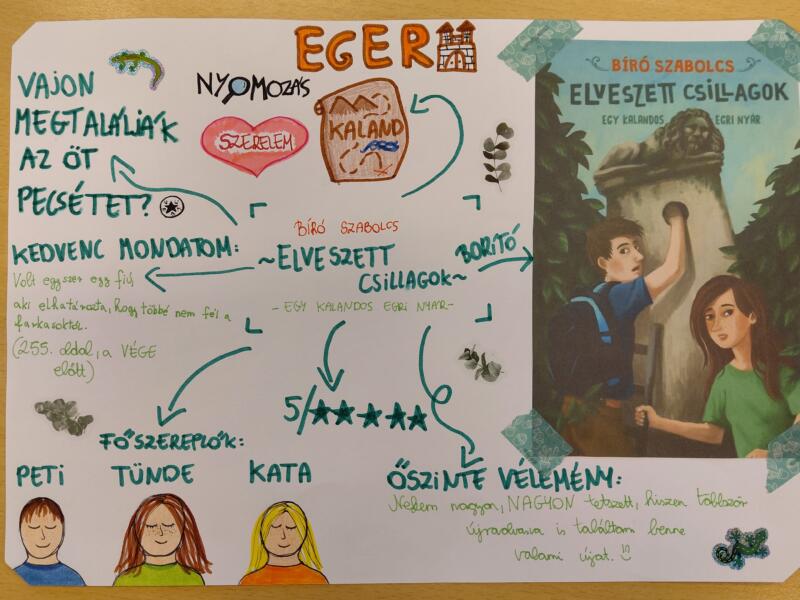 EGER
NYOMOZÁS
SZERELEM
KALAND
VAJON
MEGTALÁLJÁK
AZ ÖT
PECSÉTET?
KEDVENC MONDATOM:
Volt egyszer egy fiú,
aki elhatározta, hogy többé nem fél a
farkasoktól.
(255. oldal, a VÉGE
előtt)
BÍRÓ SZABOLCS
~ELVESZETT
CSILLAGOK~
- EGY KALANDOS EGRI NYÁR -
BORÍTÓ
BÍRÓ SZABOLCS
ELVESZETT CSILLAGOK
EGY KALANDOS EGRI NYÁR
5/★★★★★
FŐSZEREPLŐK:
PETI TÜNDE KATA
ŐSZINTE VÉLEMÉNY:
Nekem nagyon, NAGYON tetszett, hiszen többször
újraolvasva is találtam benne
valami újat.